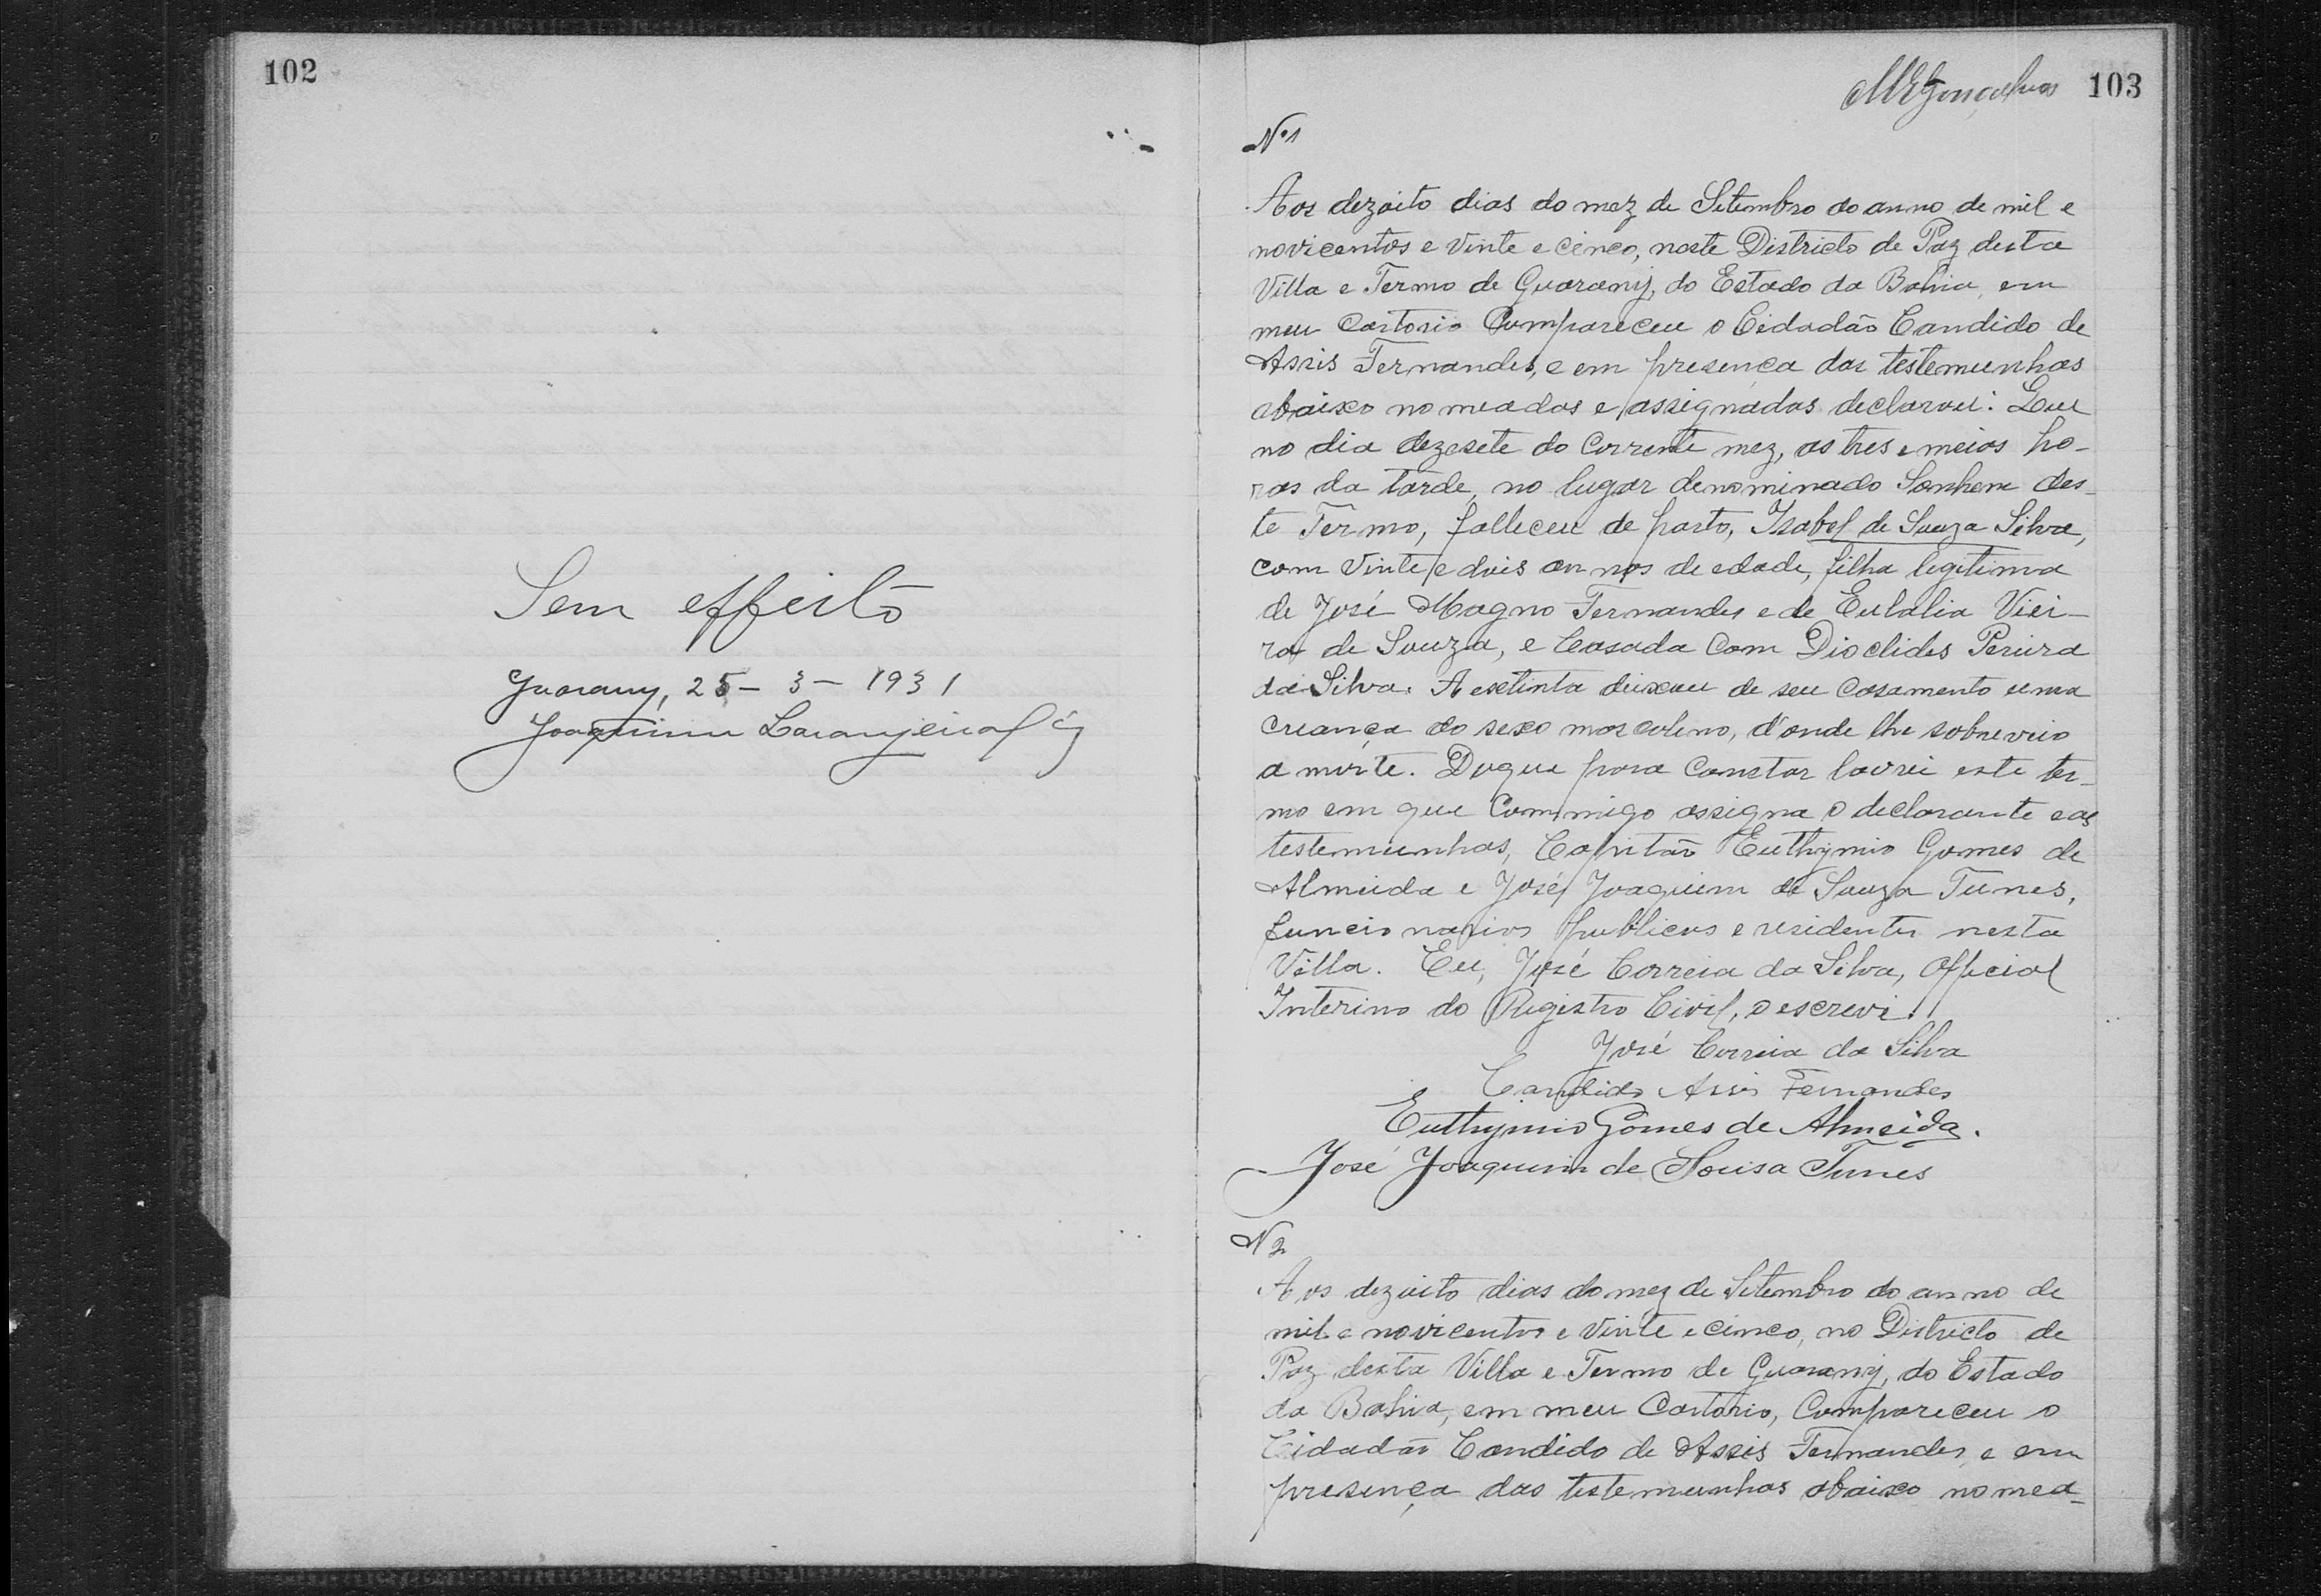 102
Sem effeito
Guarany, 25 - 3 - 1931
Joaquim Laranjeira
103
Nº 1
Aos dezoito dias do mez de Setembro do anno de mil e
novicentos e vinte e cinco, neste Districto de Paz desta
Villa e Termo de Guarany, do Estado da Bahia, em
meu Cartorio Compareceu o Cidadão Candido de
Assis Fernandes, e em presença das testemunhas
abaixo nomeadas e assignadas declarou: Que
no dia dezesete do Corrente mez, as tres e meias ho-
ras da tarde, no lugar denominado Sonhem des-
te Termo, falleceu de parto, Isabel de Souza Silva,
com vinte e dois annos de edade, filha legitima
de José Magno Fernandes e de Eulalia Viei-
ra de Souza, e Casada Com Dioclides Pereira
da Silva. A extinta deixou de seu Casamento uma
Creança do sexo masculino, d'onde lhe sobreveio
a morte. Doque para Constar lavrei este ter-
mo em que Commigo assigna o declarante e as
testemunhas, Capitão Euthymio Gomes de
Almeida e José Joaquim de Souza Tunes,
funcionarios publicos e residentes nesta
Villa. Eu, José Correia da Silva, Official
Interino do Registro Civil, o escrevi.
José Correia da Silva
Candido Assis Fernandes
Euthymio Gomes de Almeida.
José Joaquim de Sousa Tunes
N 2
Aos dezoito dias do mez de Setembro do anno de
mil e novicentos e vinte e cinco, no Districto de
Paz desta Villa e Termo de Guarany, do Estado
da Bahia, em meu Cartorio, Compareceu o
Cidadão Candido de Assis Fernandes, e em
presença das testemunhas abaixo nomea-